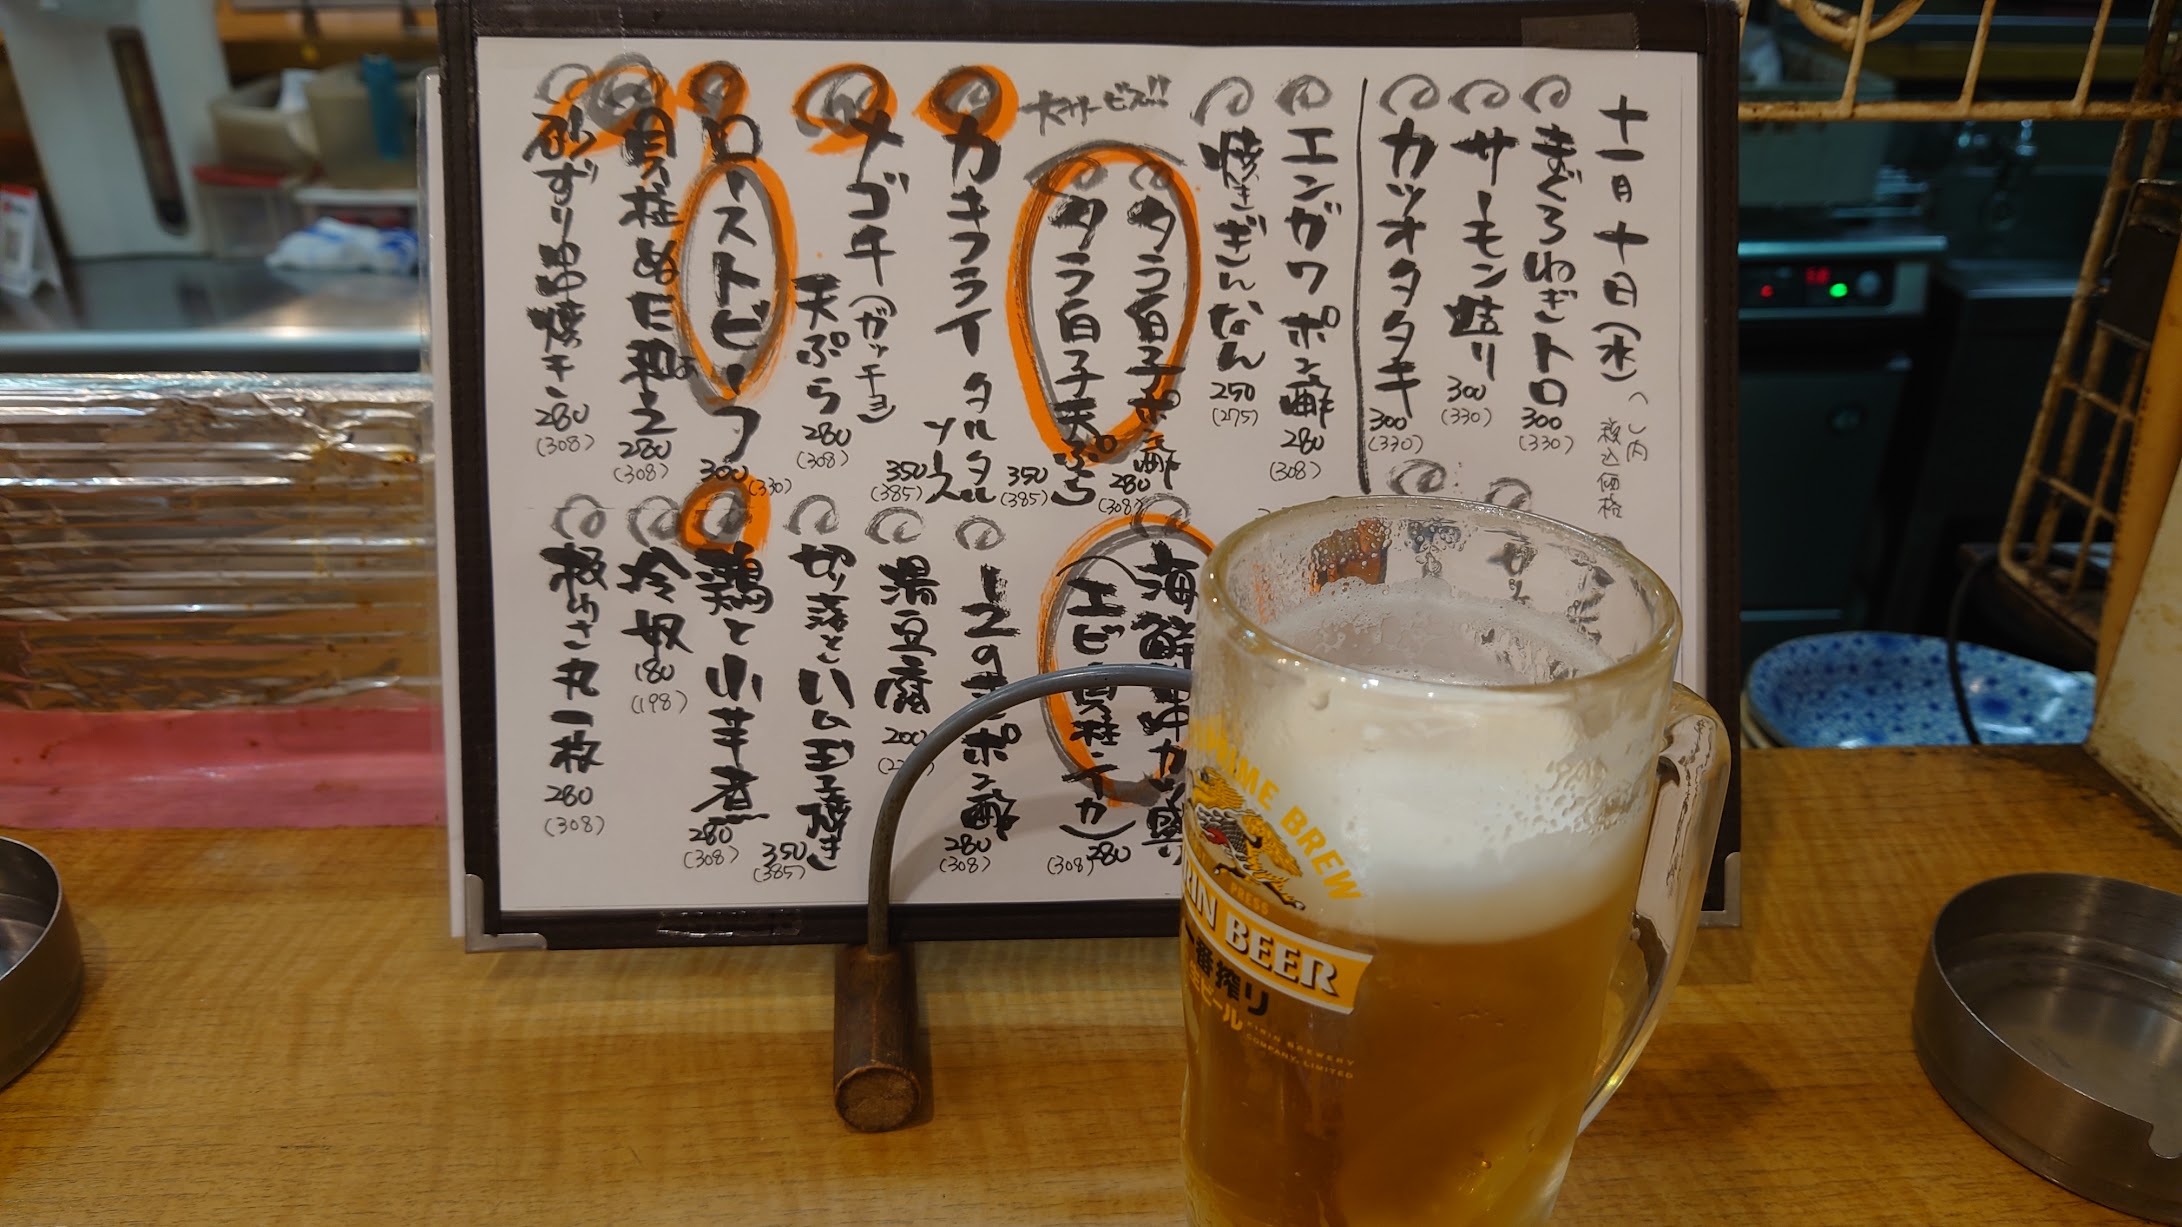 十一月十日(水)
( )内
税込価格
まぐろねぎトロ
300
(330)
サーモン造り
300
(330)
カツオタタキ
300
(330)
エンガワポン酢
280
(308)
焼きぎんなん
250
(275)
大サービス!!
タラ白子ポン酢
280
(308)
タラ白子天ぷら
350
(385)
カキフライタルタル
ソース
350
(385)
メゴチ(ガッチョ)
天ぷら
280
(308)
ローストビーフ
300
(330)
貝柱ぬた和え
280
(308)
砂ずりゆず焼き
280
(308)
海鮮
(エビ・貝柱・イカ)
280
(308)
ポン酢
280
(308)
湯豆腐
200
切り落としハム玉子焼き
350
(385)
鶏と小芋煮
280
(308)
冷奴
180
(198)
板わさ丸一枚
280
(308)
PRIME BREW
PRESS
KIRIN BEER
一番搾り
生ビール
KIRIN BREWERY
COMPANY, LIMITED